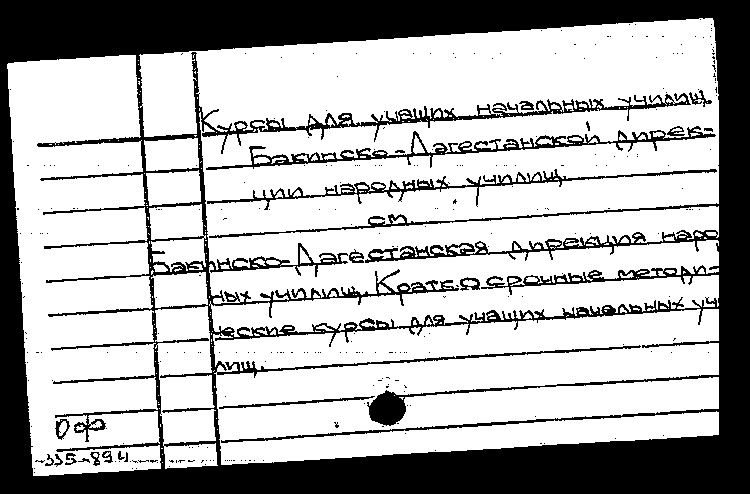 Курсы для учащих начальных училищ
Бакинско-Дагестанской дирек=
ции народных училищ.
см.
Бакинско-Дагестанская дирекция наро
ных училищ. Краткосрочные методи=
ческие курсы для учащих начальных учи
лищ.
Оф
335-894